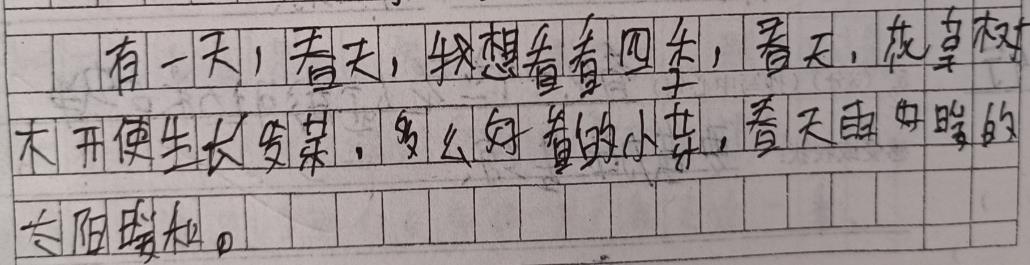 有一天，春天，我想看看四季，春天，花草树
木开使生长发芽，多么好看的小芽，春天由好暖的
太阳暖和。